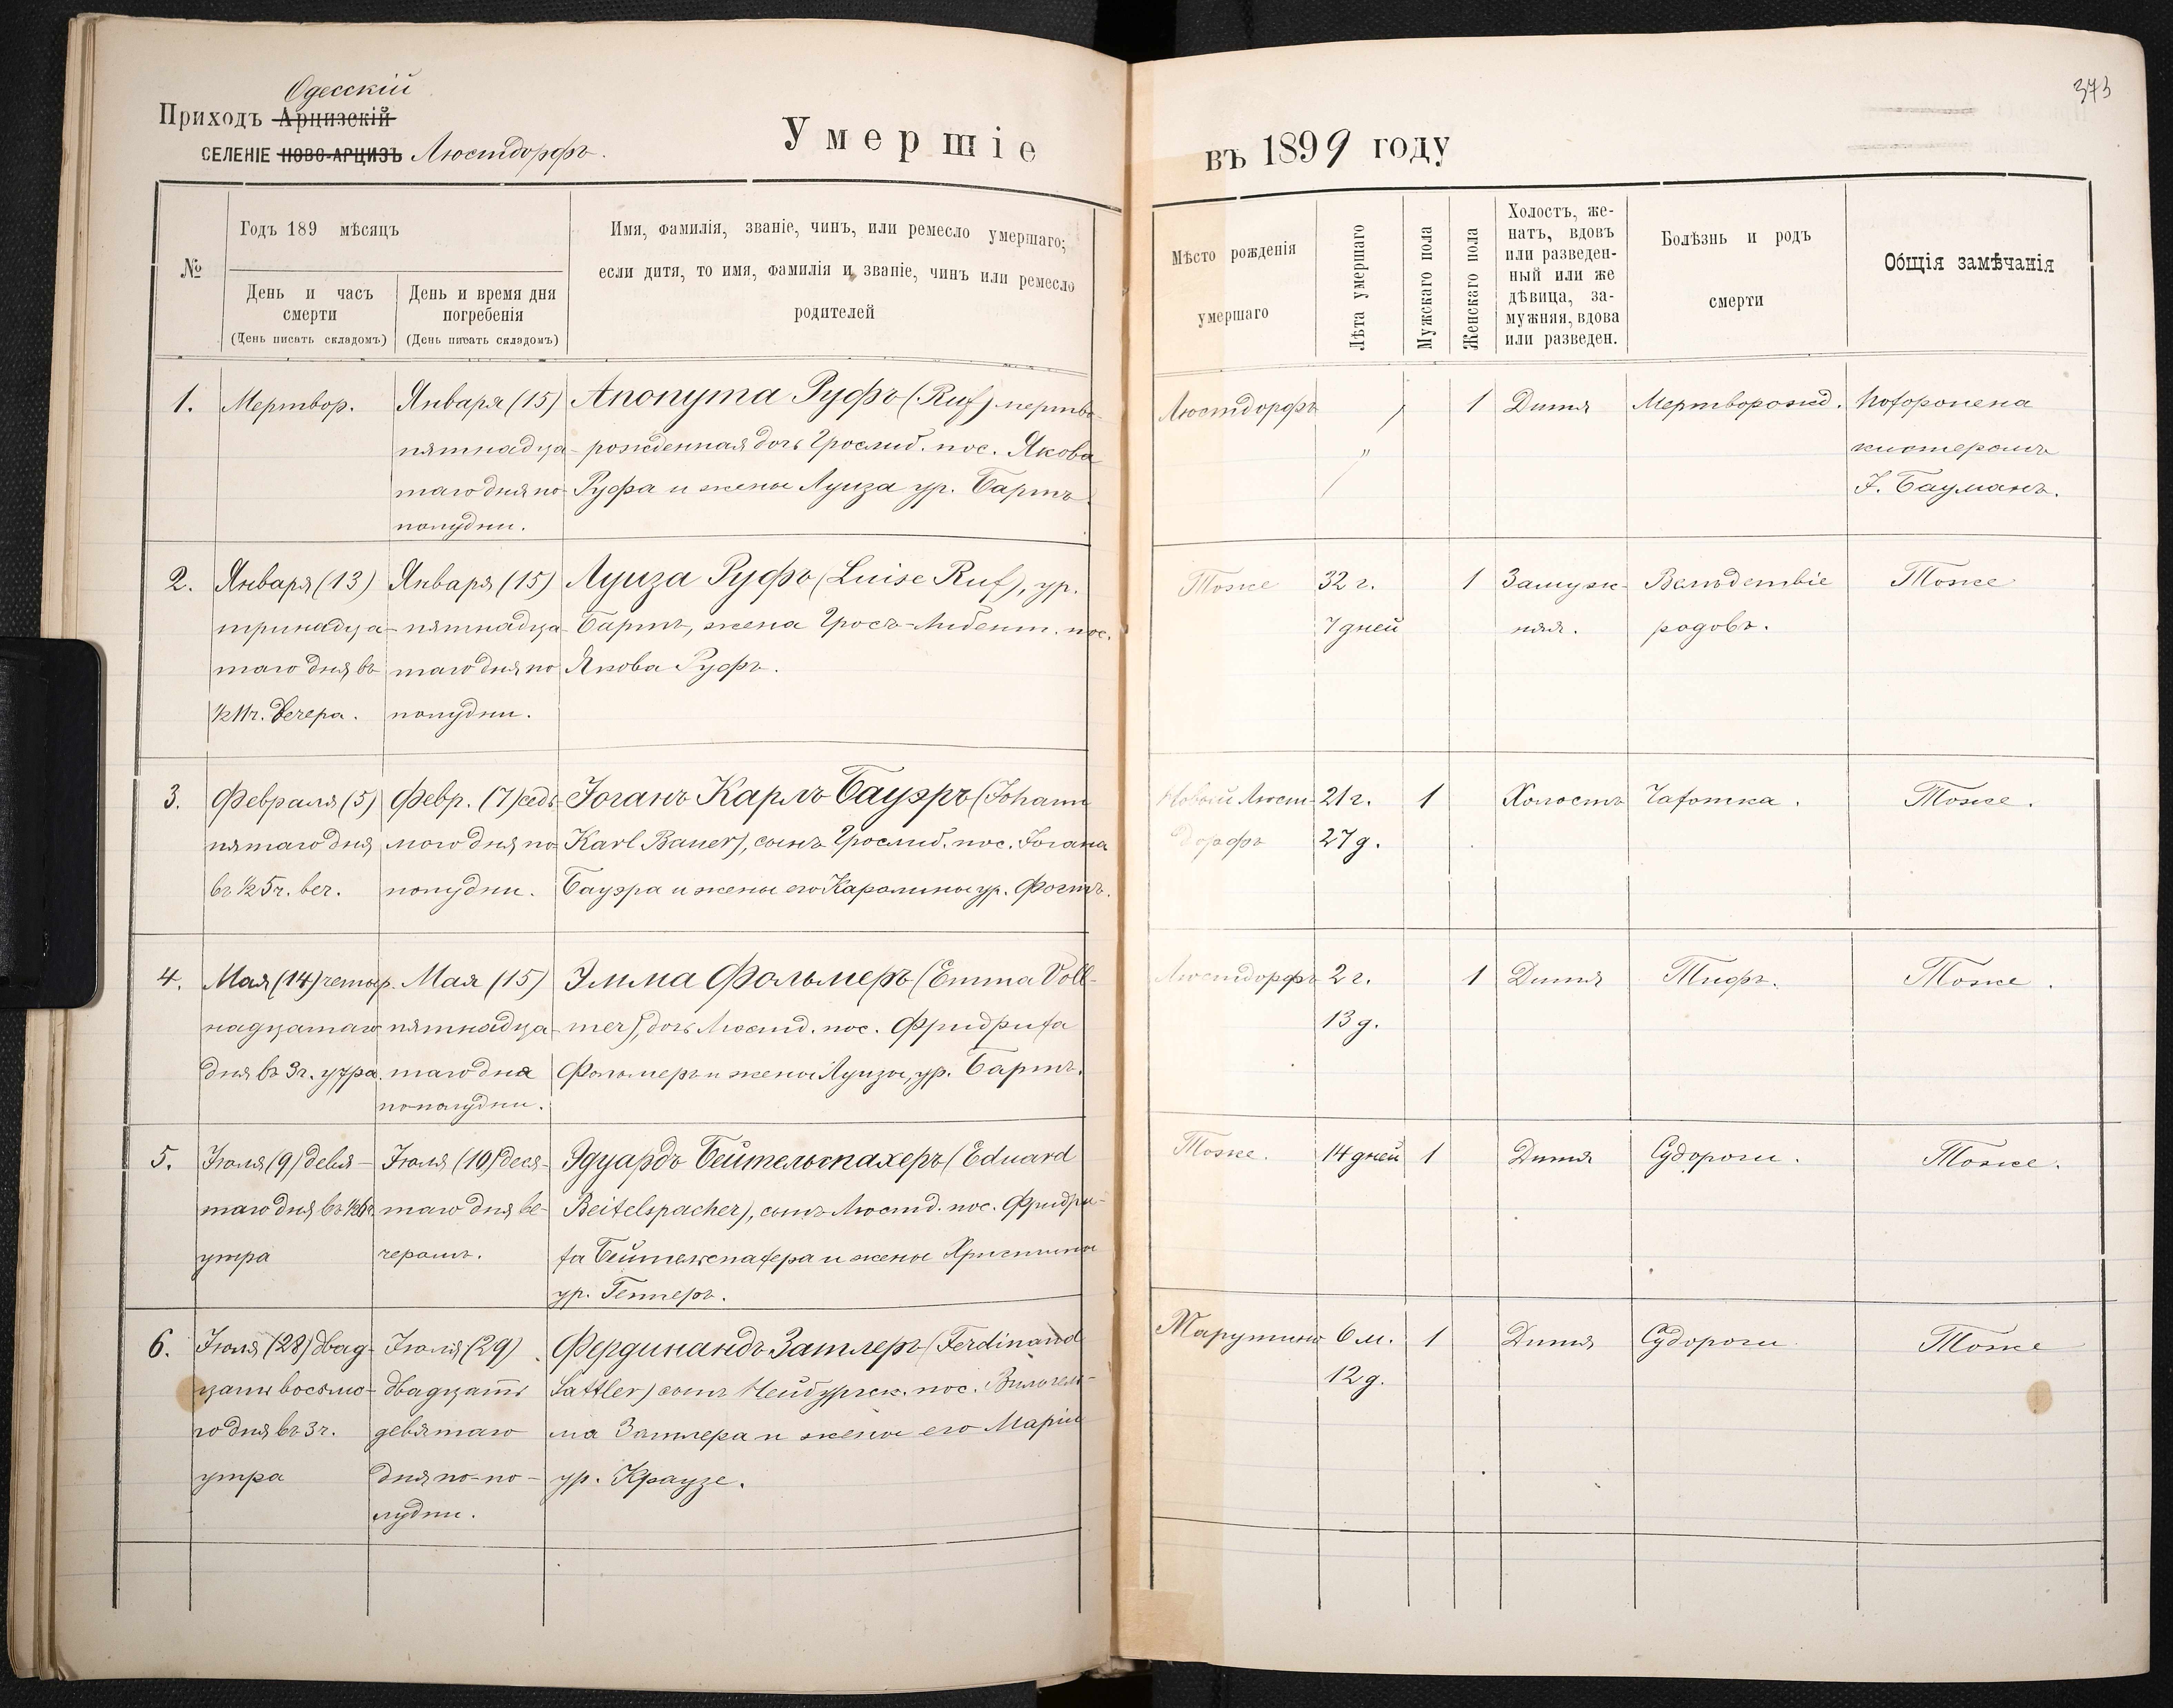 Одесскій
Приходъ Арцизскій
СЕЛЕНІЕ НОВО-АРЦИЗЪ Люстдорфъ.
Умершіе
въ 1899 году
373
№
Годъ 189 мѣсяцъ
День и часъ
смерти
(День писать складомъ)
День и время дня
погребенія
(День писать складомъ)
Имя, фамилія, званіе, чинъ, или ремесло умершаго;
если дитя, то имя, фамилія и званіе, чинъ или ремесло
родителей
Мѣсто рожденія
умершаго
Лѣта умершаго
Мужскаго пола
Женскаго пола
Холостъ, же-
натъ, вдовъ
или разведен-
ный или же
дѣвица, за-
мужняя, вдова
или разведен.
Болѣзнь и родъ
смерти
Общія замѣчанія
1.
Мертвор.
Января (15)
пятнадца-
таго дня по
полудни.
Анонyма Руфъ (Ruf) мертво-
рожденная дочь Грослиб. пос. Якова
Руфа и жены Луиза ур. Бартъ.
Люстдорфъ
"
1
Дитя
Мертворожд.
Похоронена
кистеромъ
J. Бауманъ.
2.
Января (13)
тринадца-
таго дня въ
½11ч. вечера.
Января (15)
пятнадца-
таго дня по
полудни.
Луиза Руфъ (Luise Ruf), ур.
Бартъ, жена Гросъ-Либент. пос.
Якова Руфъ.
Тоже
32 г.
7 дней
1
Замуж-
няя.
Вслѣдствіе
родовъ.
Тоже
3.
Февраля (5)
пятаго дня
въ ½5ч. веч.
Февр. (7) седь-
мого дня по
полудни.
Іоганъ Карлъ Бауэръ (Johann
Karl Bauer), сынъ Грослиб. пос. Іогана
Бауэра и жены его Каролины ур. Фогтъ.
Новый Люст-
дорфъ
21 г.
27 д.
1
Холостъ
Чахотка.
Тоже.
4.
Мая (14) четыр-
надцатаго
дня въ 3ч. утра.
Мая (15)
пятнадца-
таго дня
по полудни.
Эмма Фольмеръ (Emma Voll-
mer), дочь Люстд. пос. Фридриха
Фольмеръ и жены Луизы, ур. Бартъ.
Люстдорфъ
2 г.
13 д.
1
Дитя
Тифъ.
Тоже.
5.
Іюля (9) девя-
таго дня въ ½6ч.
утра
Іюля (10) деся-
таго дня ве-
черомъ.
Эдуардъ Бейтельспахеръ (Eduard
Beitelspacher), сынъ Люстд. пос. Фридри-
ха Бейтельспахера и жены Христины
ур.
Тоже.
14 дней
1
Дитя
Судороги.
Тоже.
6.
Іюля (28) двад-
цать восьмо-
го дня въ 3ч.
утра
Іюля (29)
двадцать
девятаго
дня по по-
лудни.
Фердинандъ Затлеръ (Ferdinand
Sattler) сынъ Нейбургск. пос. Вильгель-
ма Затлера и жены его Маріи
ур. Краузе.
Тарутино
6 м.
12 д.
1
Дитя
Судороги
Тоже